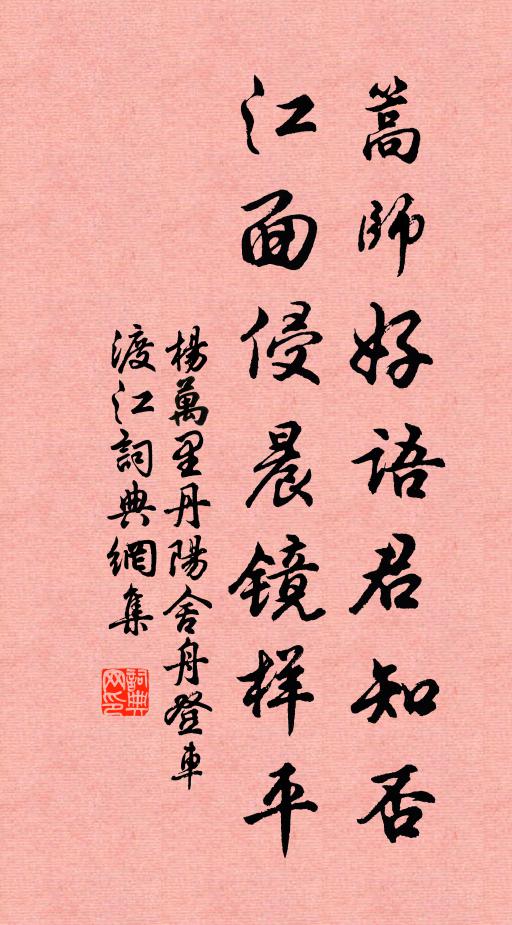 蒿師好语君知否
江面侵晨镜样平
楊萬里丹陽舍舟登車
渡江詞典網集
詞典网印